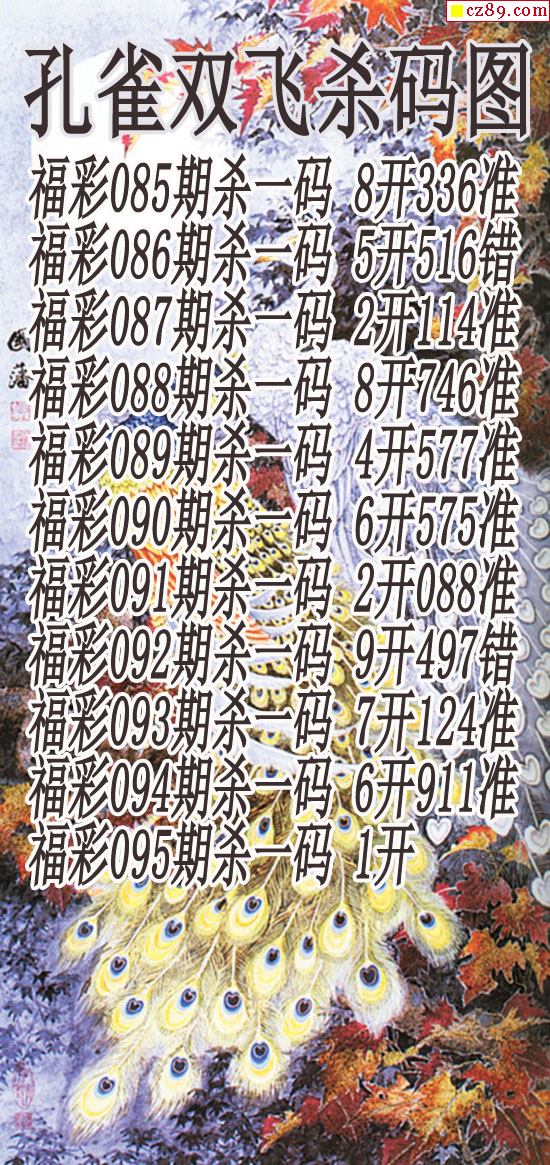 cz89.com
孔雀双飞杀码图
福彩085期杀一码 8开336准
福彩086期杀一码 5开516错
福彩087期杀一码 2开114准
福彩088期杀一码 8开746准
福彩089期杀一码 4开577准
福彩090期杀一码 6开575准
福彩091期杀一码 2开088准
福彩092期杀一码 9开497错
福彩093期杀一码 7开124准
福彩094期杀一码 6开911准
福彩095期杀一码 1开